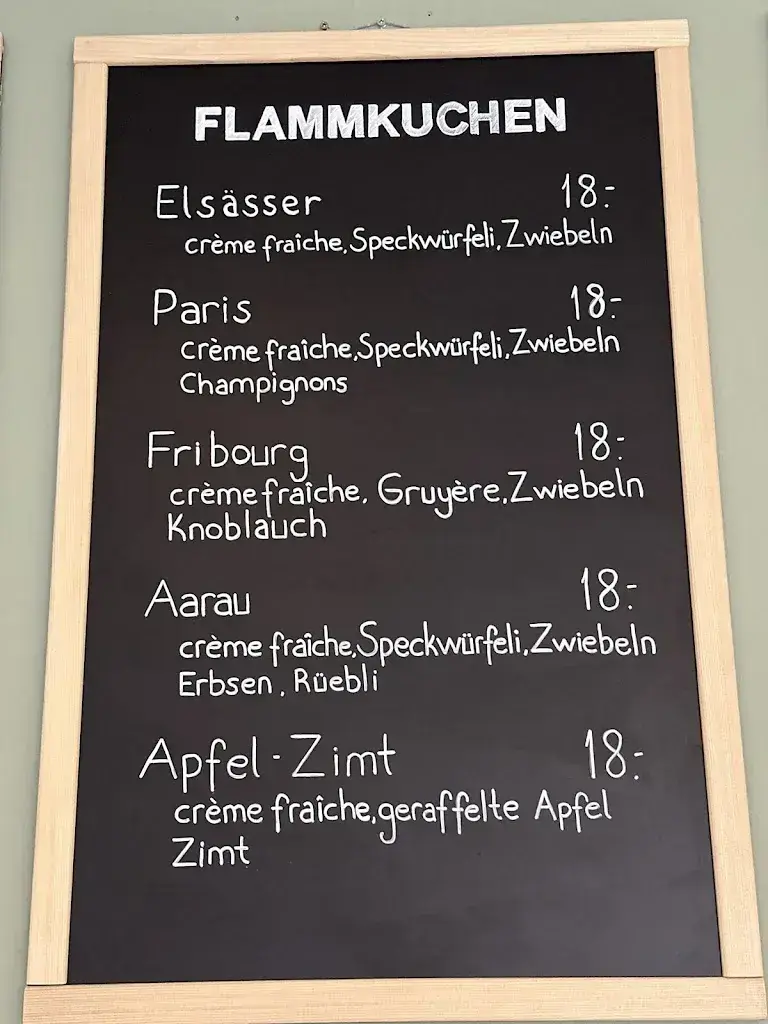 FLAMMKUCHEN
Elsässer 18.-
crème fraîche, Speckwürfeli, Zwiebeln
Paris 18.-
crème fraîche, Speckwürfeli, Zwiebeln
Champignons
Fribourg 18.-
crème fraîche, Gruyère, Zwiebeln
Knoblauch
Aarau 18.-
crème fraîche, Speckwürfeli, Zwiebeln
Erbsen, Rüebli
Apfel-Zimt 18.-
crème fraîche, geraffelte Apfel
Zimt